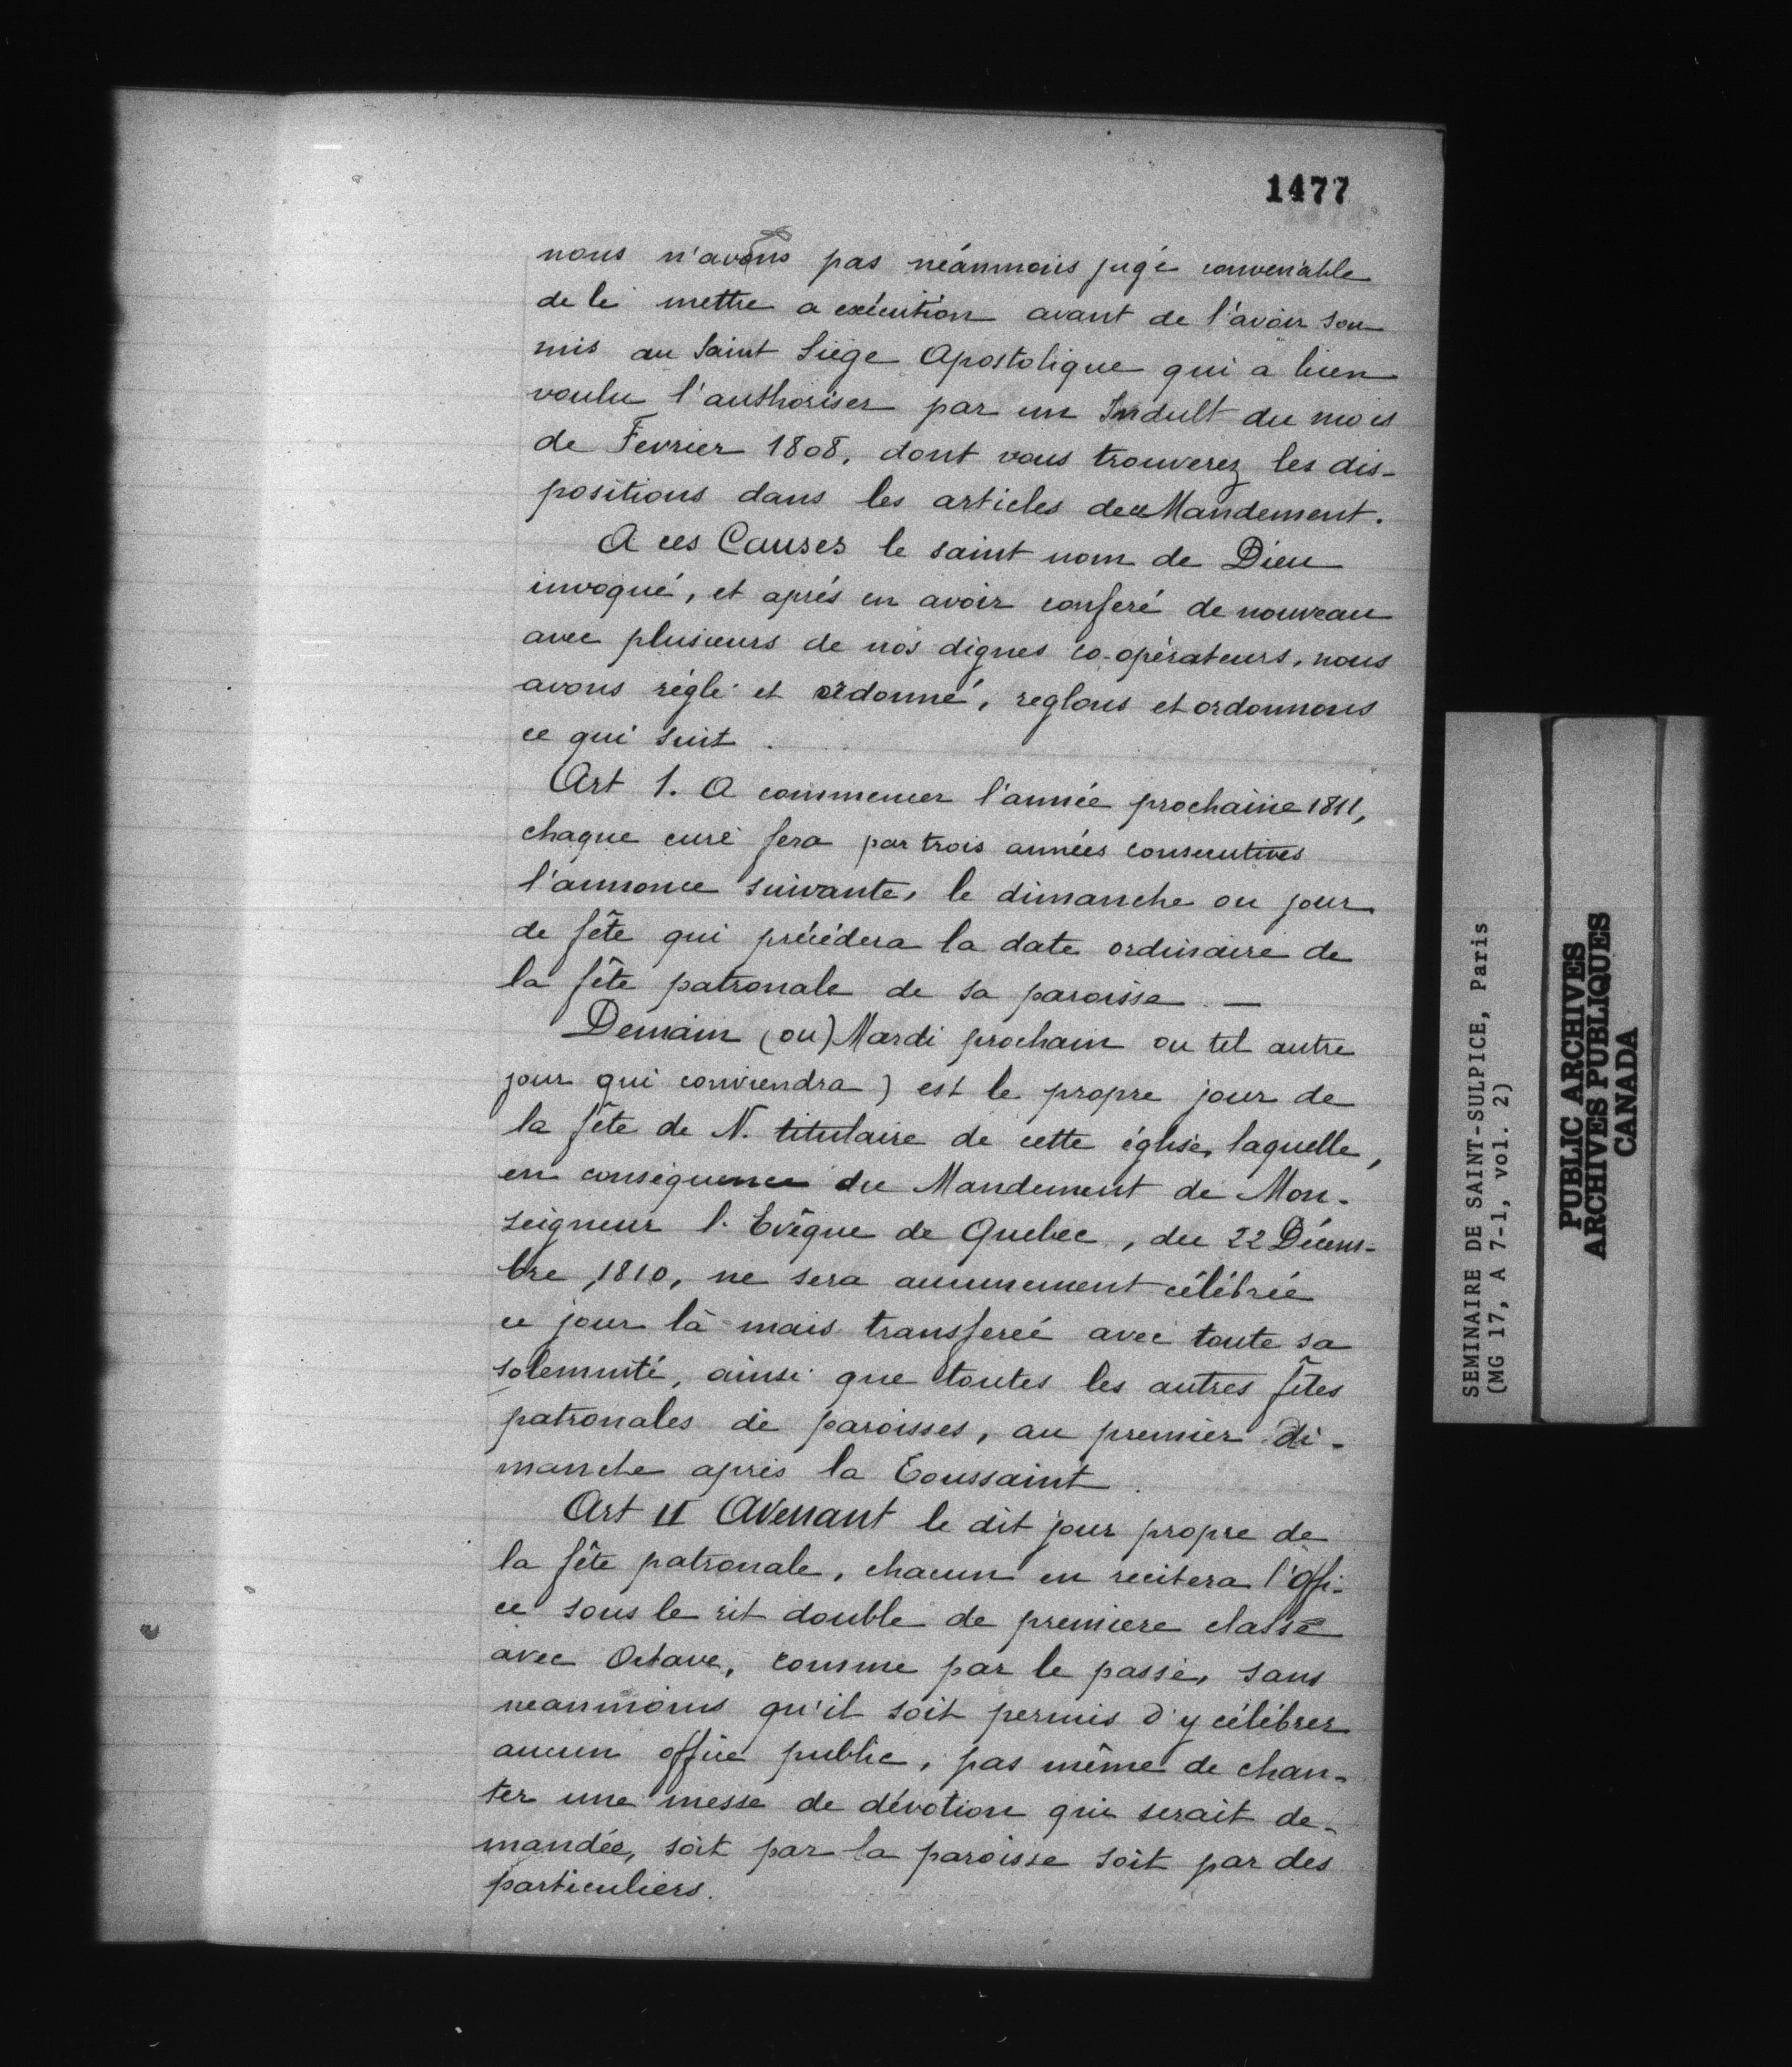 1477
nous n'avons pas néanmois jugé convenable
de le mettre a exécution avant de l'avoir sou
mis au Saint Siège Apostolique qui a bien
voulu l'authoriser par un Indult du mois
de Fevrier 1808, dont vous trouverez les dis-
positions dans les articles de ce Mandement.
A ces Causes le saint nom de Dieu
invoqué, et aprés en avoir conferé de nouveau
avec plusieurs de nos dignes co-opérateurs, nous
avons réglé et ordonné, reglons et ordonnons
ce qui suit.
Art 1. A commencer l'année prochaine 1811,
chaque curé fera par trois années consecutives
l'annonce suivante, le dimanche ou jour
de fête qui précédera la date ordinaire de
la fête patronale de sa paroisse. —
Demain (ou) Mardi prochain ou tel autre
jour qui conviendra) est le propre jour de
la fête de N. titulaire de cette église, laquelle,
en conséquence du Mandement de Mon-
seigneur l. Evêque de Quebec, du 22 Décem-
bre 1810, ne sera aucunement célébrée
ce jour là mais transferée avec toute sa
solemnité, ainsi que toutes les autres fêtes
patronales de paroisses, au premier di-
manche après la Toussaint.
Art II Avenant le dit jour propre de
la fête patronale, chacun en recitera l'Offi-
ce sous le rit double de premiere classe
avec Octave, comme par le passé, sans
neanmoins qu'il soit permis d'y célébrer
aucun office public, pas même de chan-
ter une messe de dévotion qui serait de-
mandée, soit par la paroisse soit par des
particuliers.
SEMINAIRE DE SAINT-SULPICE, Paris
(MG 17, A 7-1, vol. 2)
PUBLIC ARCHIVES
ARCHIVES PUBLIQUES
CANADA